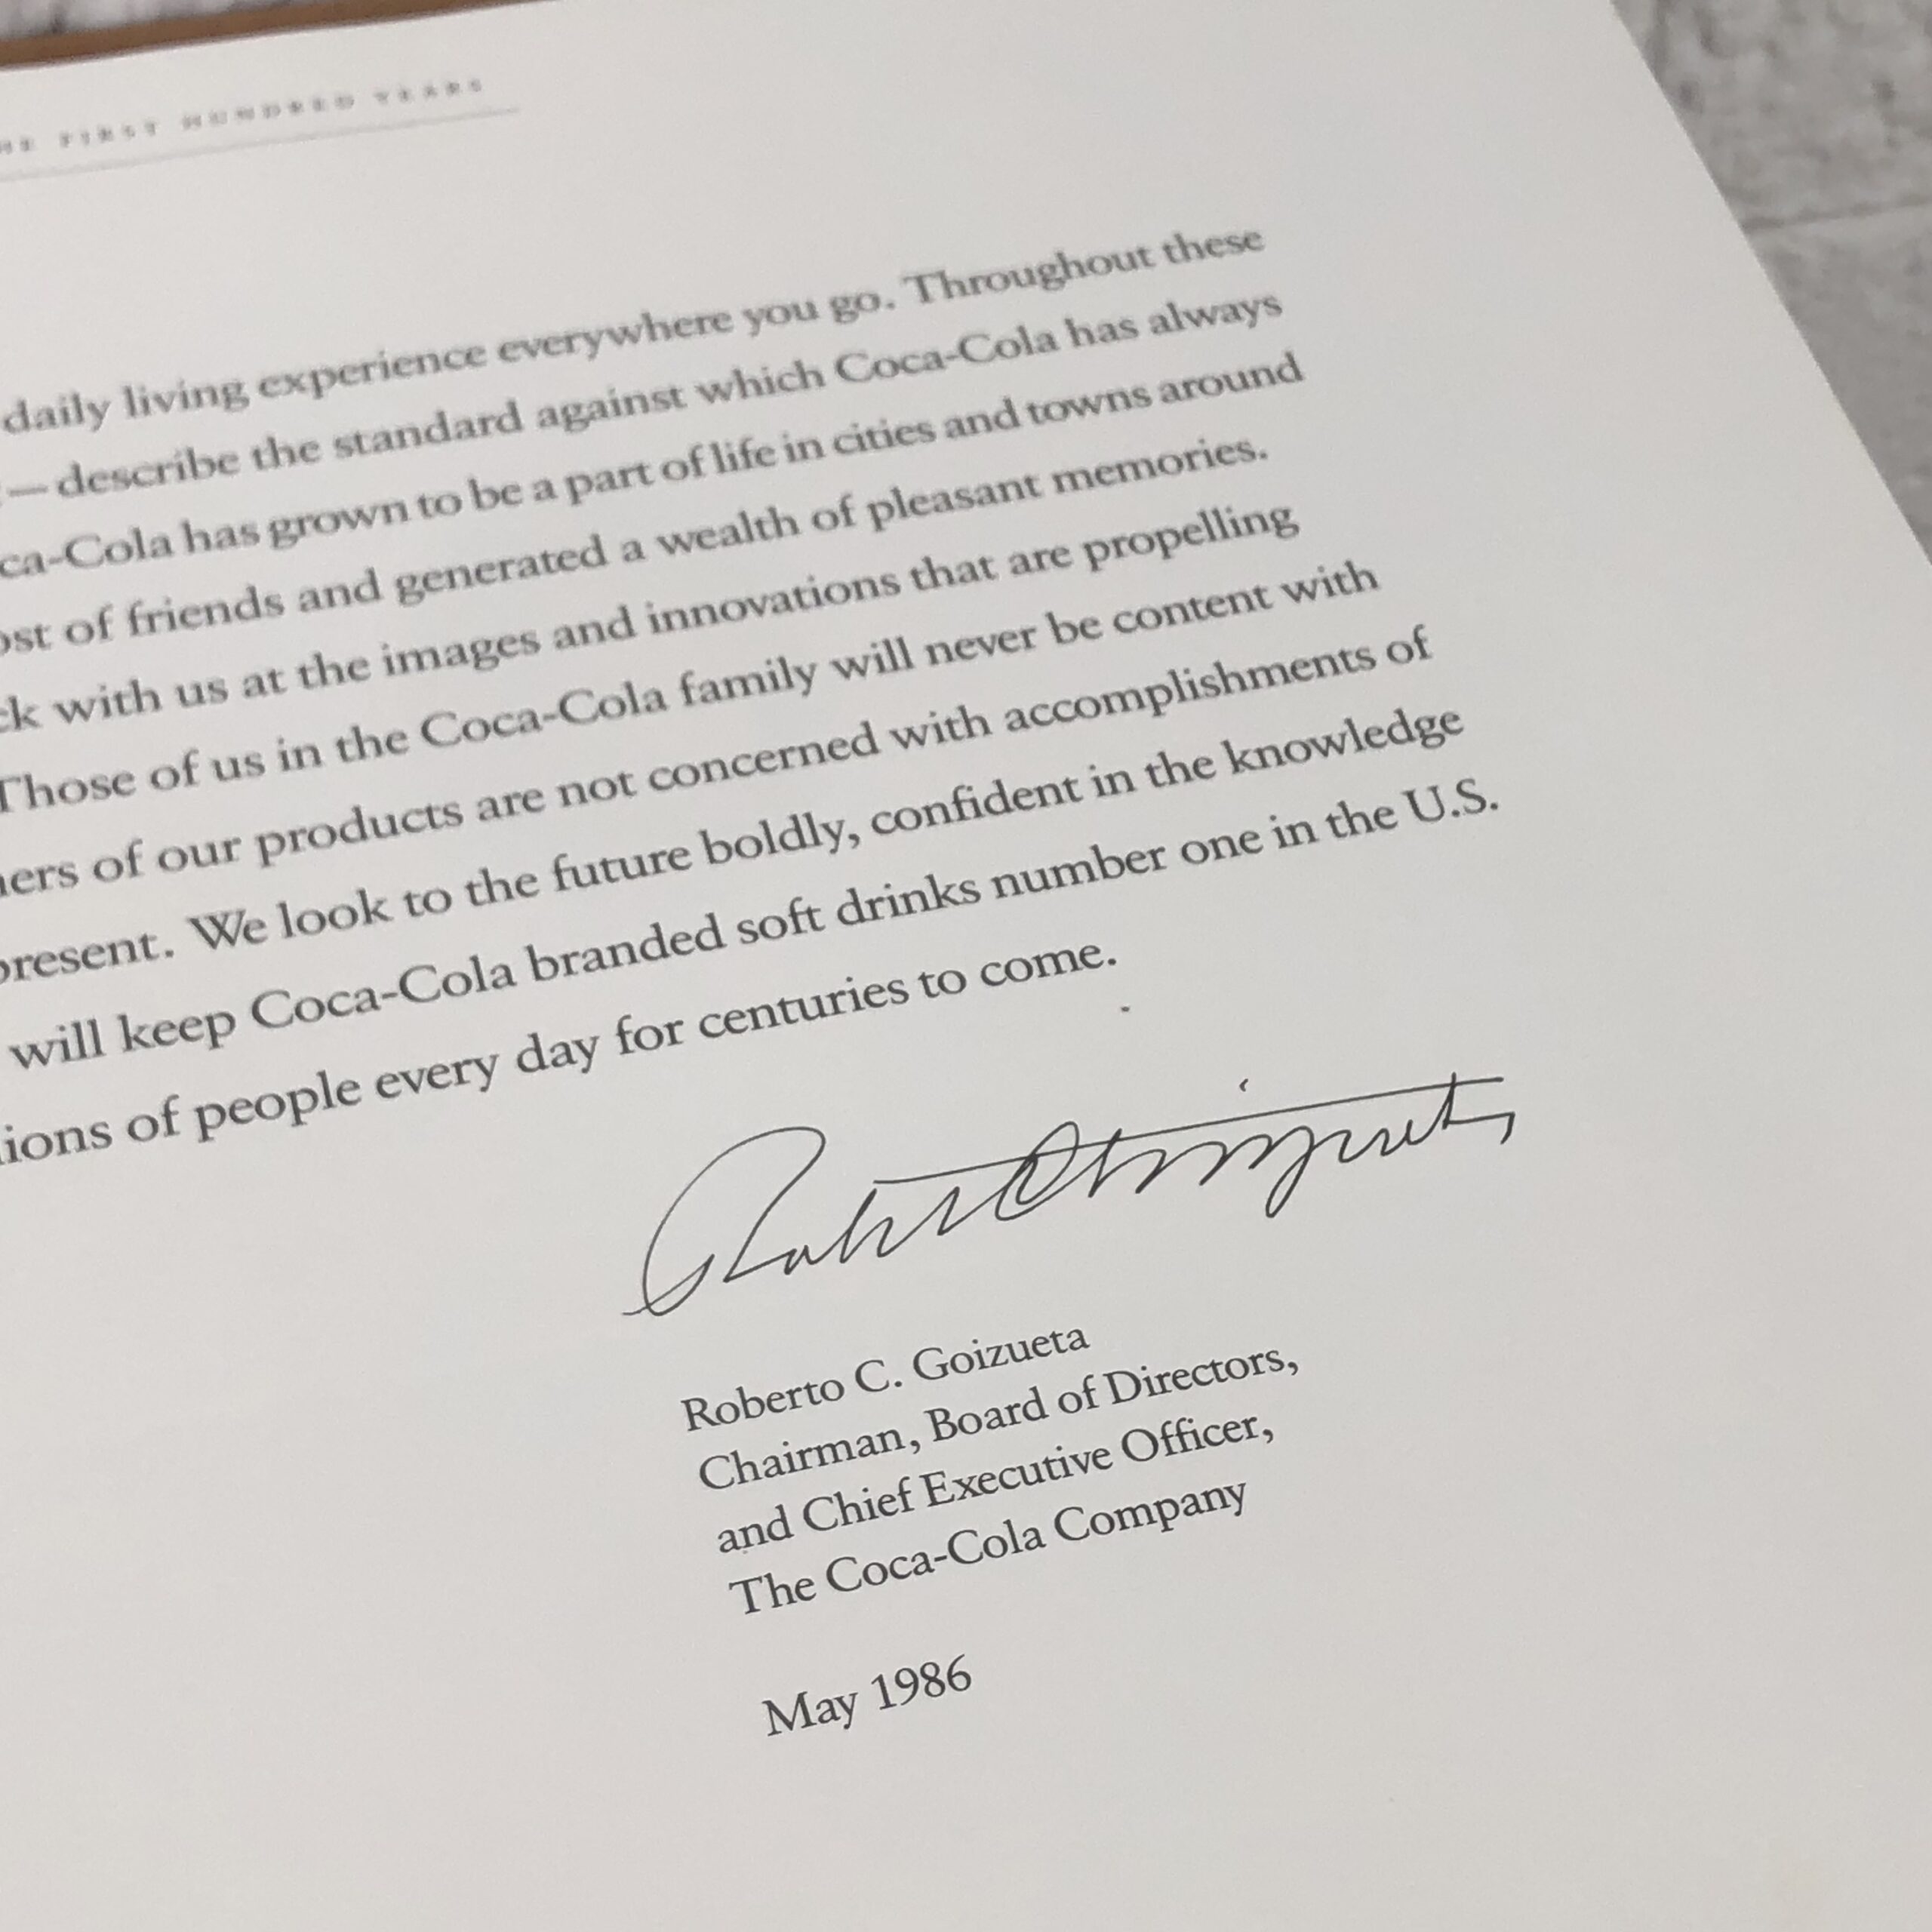 THE FIRST HUNDRED YEARS
daily living experience everywhere you go. Throughout these
—describe the standard against which Coca-Cola has always
ca-Cola has grown to be a part of life in cities and towns around
ost of friends and generated a wealth of pleasant memories.
ck with us at the images and innovations that are propelling
Those of us in the Coca-Cola family will never be content with
ers of our products are not concerned with accomplishments of
present. We look to the future boldly, confident in the knowledge
will keep Coca-Cola branded soft drinks number one in the U.S.
ions of people every day for centuries to come.
Roberto C. Goizueta
Chairman, Board of Directors,
and Chief Executive Officer,
The Coca-Cola Company
May 1986